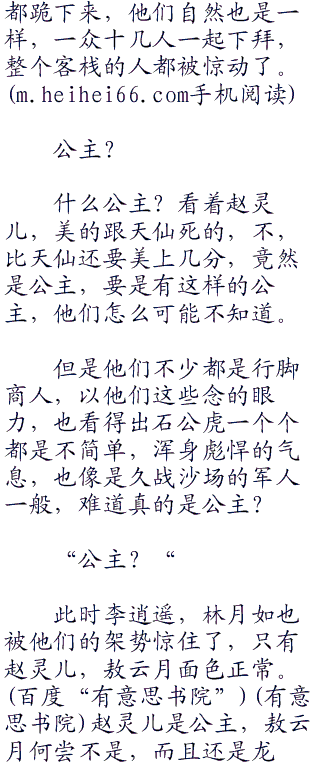 都跪下来，他们自然也是一
样，一众十几人一起下拜，
整个客栈的人都被惊动了。
(m.heihei66.com手机阅读)
公主？
什么公主？看着赵灵
儿，美的跟天仙死的，不，
比天仙还要美上几分，竟然
是公主，要是有这样的公
主，他们怎么可能不知道。
但是他们不少都是行脚
商人，以他们这些念的眼
力，也看得出石公虎一个个
都是不简单，浑身彪悍的气
息，也像是久战沙场的军人
一般，难道真的是公主？
“公主？“
此时李逍遥，林月如也
被他们的架势惊住了，只有
赵灵儿，敖云月面色正常。
(百度“有意思书院”)(有意
思书院)赵灵儿是公主，敖云
月何尝不是，而且还是龙